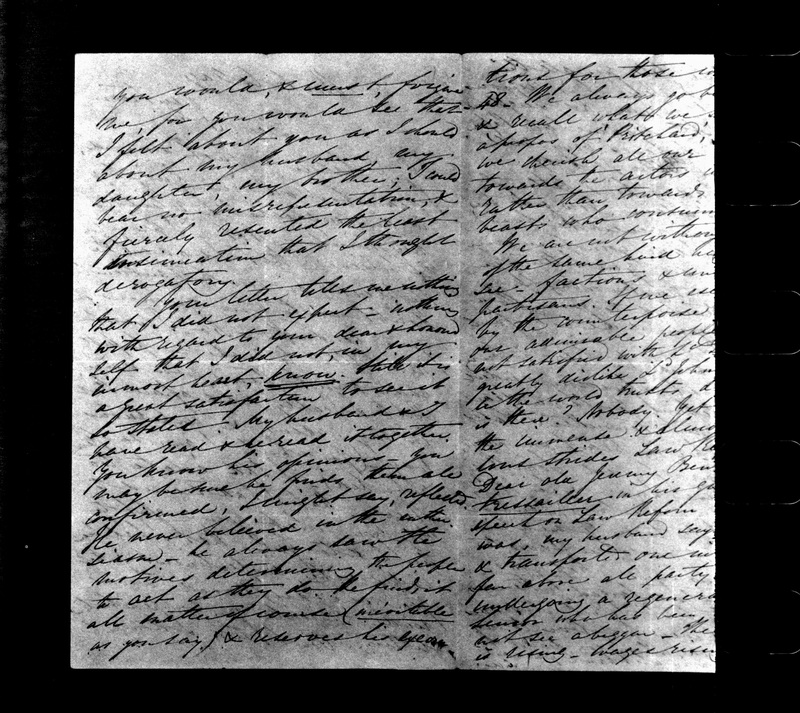 you would, & must, forgive
me, for you would see that
I felt about you as I should
about my husband, my
daughter, my brother; I could
bear no misrepresentation, &
fiercely resented the least
insinuation that I thought
derogatory.
Your letter tells me nothing
that I did not expect – nothing
with regard to your dear & honored
self that I did not, in my
inmost heart, know. Still it is
a great satisfaction to see it
so stated. My husband & I
have read & reread it together,
You know his opinions – you
may be sure he finds them all
confirmed, I might say, reflected.
He never believed in the
– he always saw the
motives determining the people
to act as they do. He finds it
all matter of course (inévitable
as you say,) & reserves his
tions for those
48 – We always go
& recall what we
apropos of
we cherish all our
towards the actors
rather than towards
beasts who
We are not without
of the same kind
are – factions &
partisans
by the counterpoise
our admirable people
not satisfied with
greatly dislike Ld John
in the world trusts
is there? Nobody. Yet
the immense &
lous strides Law
Dear old Jeremy
tressailler in his
speech on Law Reform
was, my husband says
& transported one
far above all party
undergoing a
Senior who has been
not see a beggar – The
is rising – wages